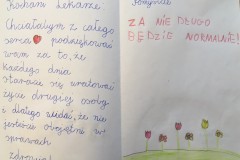 Kochani Lekarze!
Chciałabym z całego
serca podziękować
wam za to, że
każdego dnia
staracie się uratować
życie drugiej osoby
i dlatego wiedzć, że nie
jesteście obojętni w
sprawach
zdrowia
ZA NIE DŁUGO
BĘDZIE NORMALNIE!